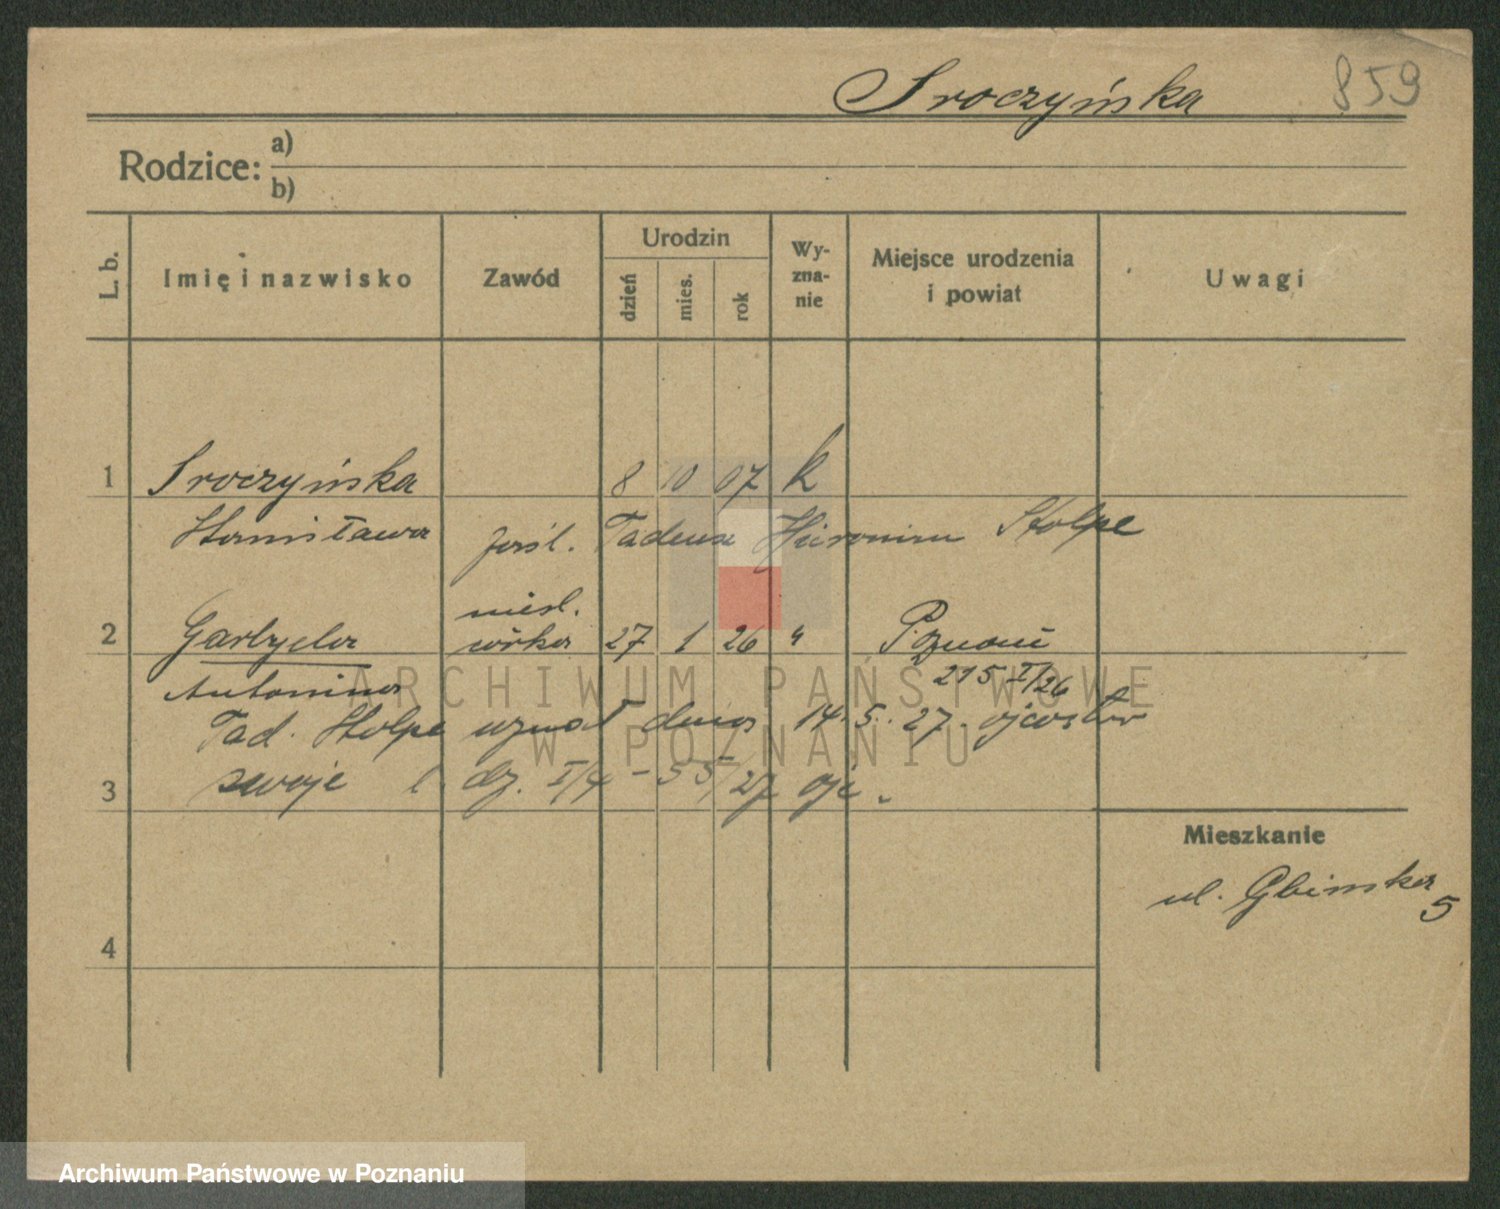 Sroczyńska 859
Rodzice: a)
b)
L. b.
Imię i nazwisko
Zawód
Urodzin
dzień
mies.
rok
Wy-
zna-
nie
Miejsce urodzenia
i powiat
Uwagi
1 Sroczyńska 8 10 07 k
Stanisława Tadeusz Hieronim Stolpe
nieśl.
2 córka 27 1 26 "
Antonina 215 I/26
Tad. Stolpe uznał dnia 14. 5. 27. ojcostwo
3 swoje dz. I/4 - 55/27
Mieszkanie
ul. 5
4
ARCHIWUM PAŃSTWOWE
W POZNANIU
Archiwum Państwowe w Poznaniu